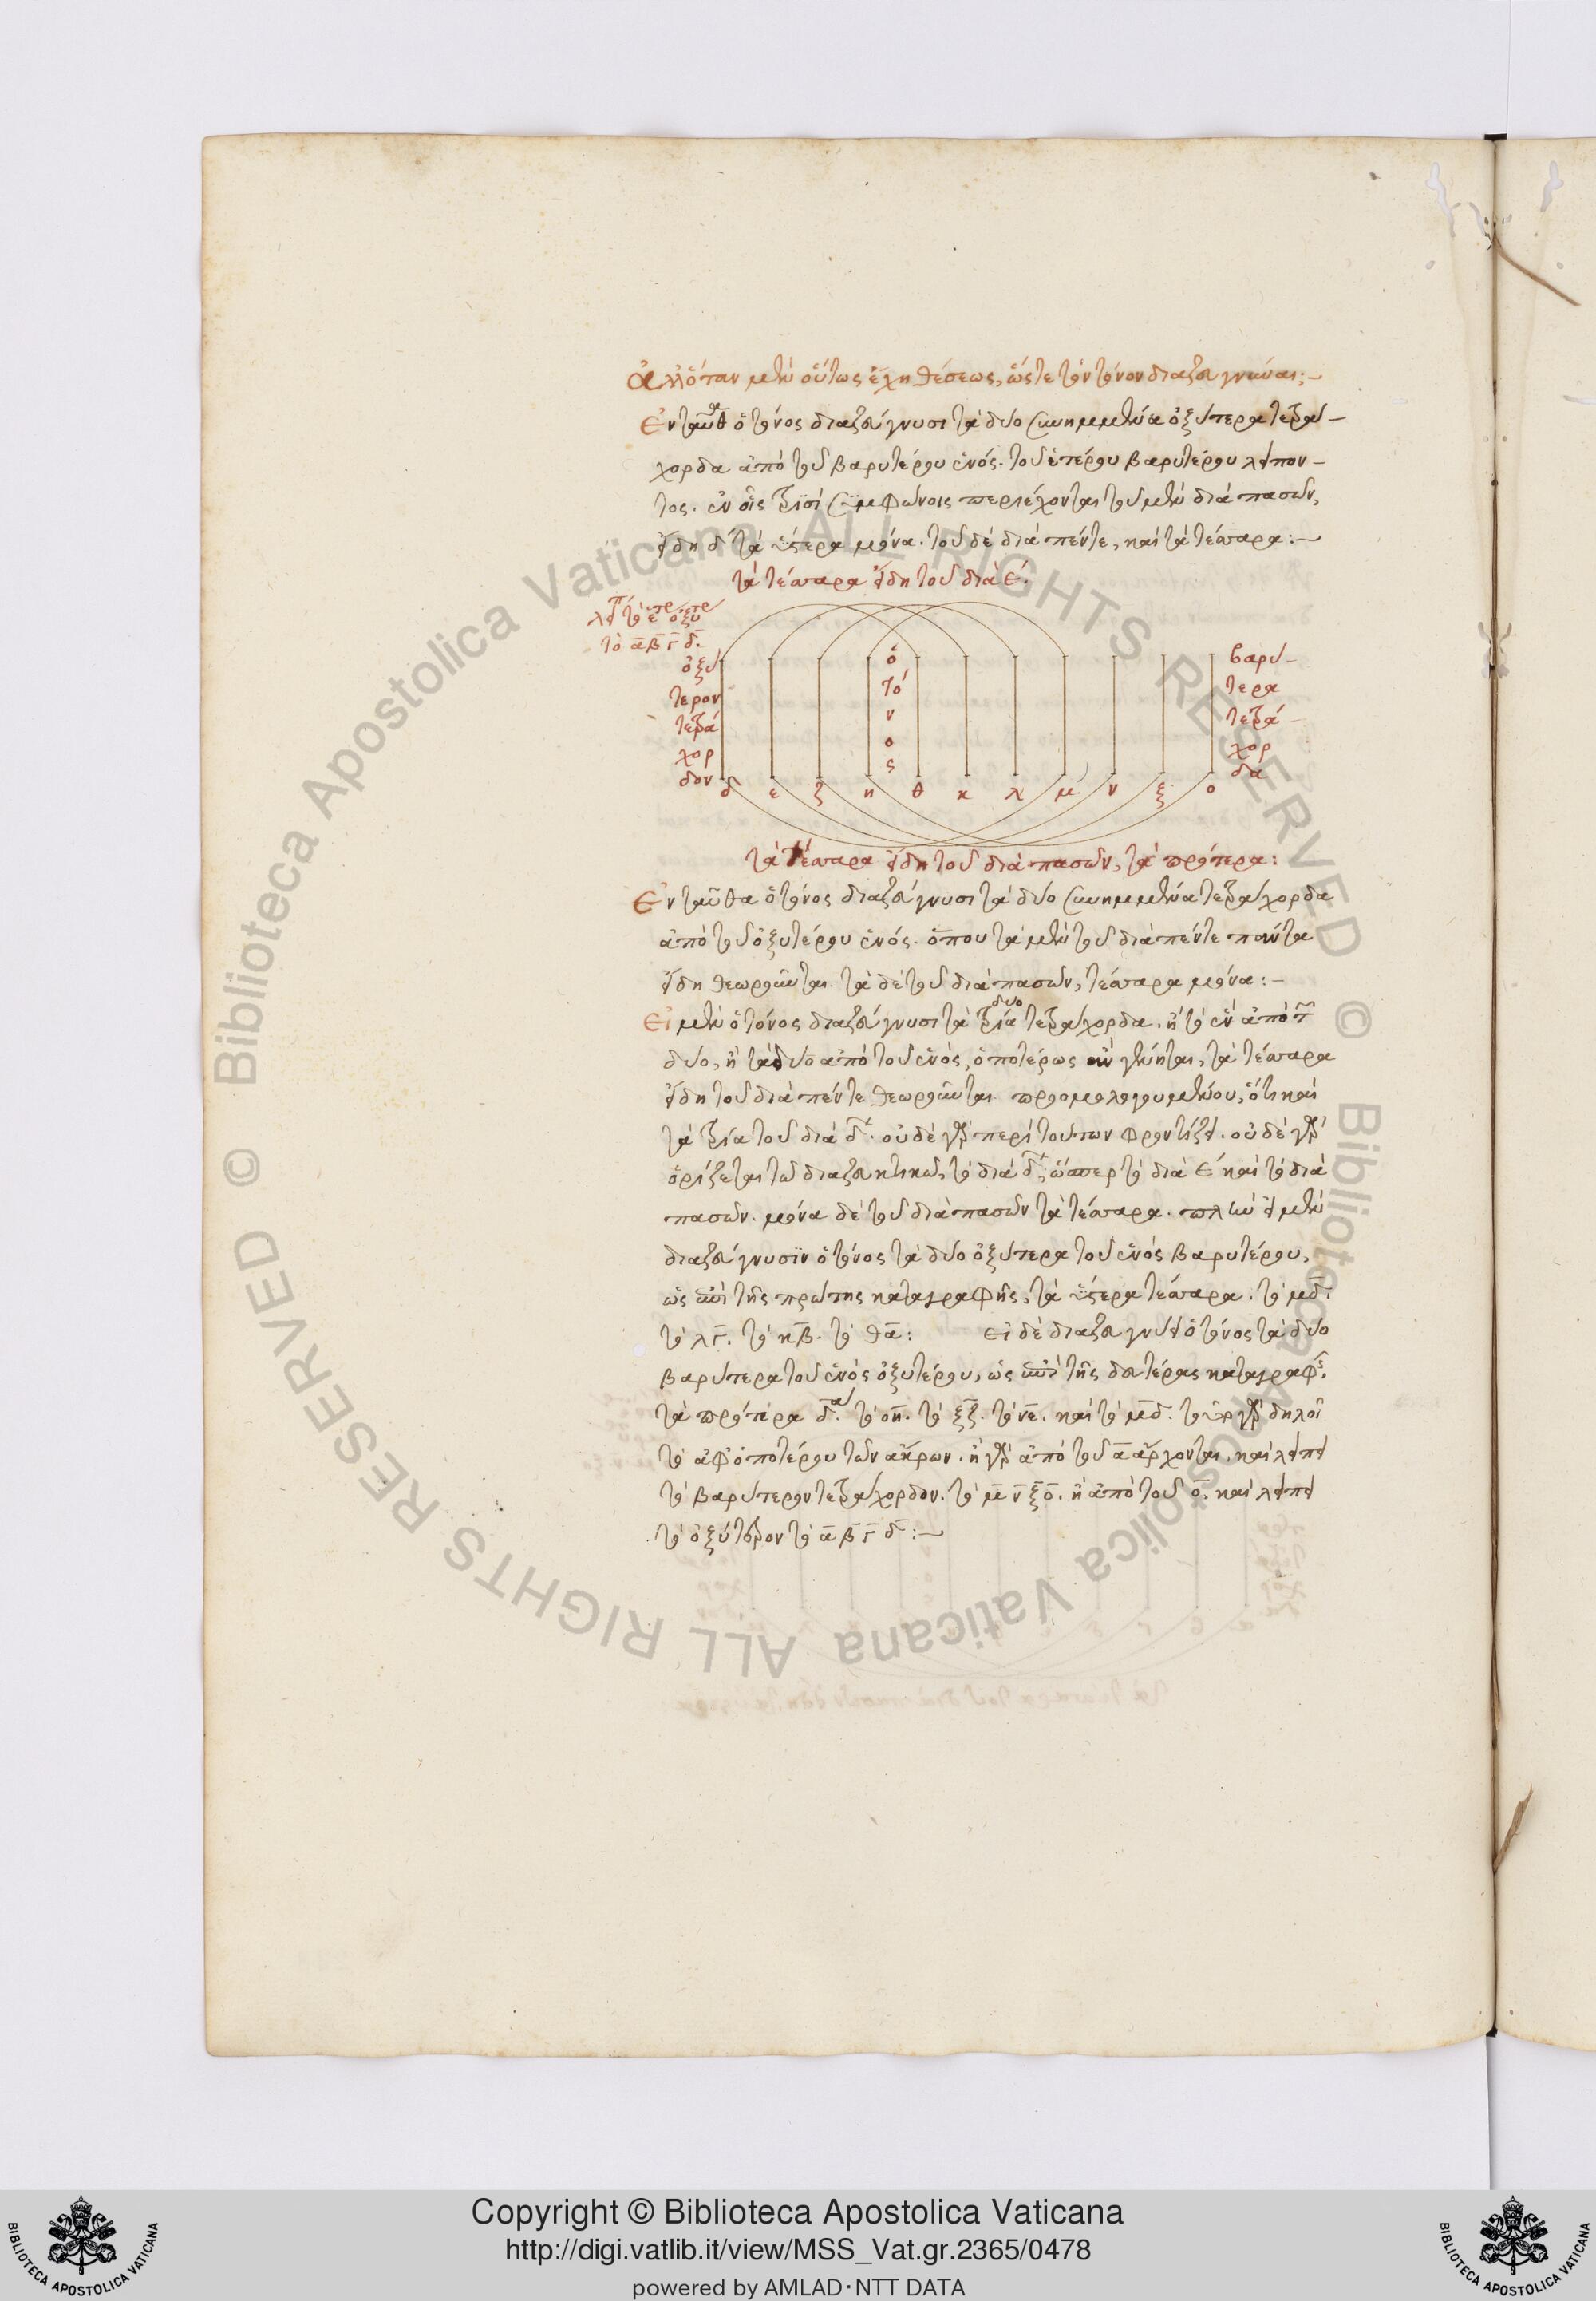 Ἀλλ' ὅταν μὲν οὕτως ἔχη θέσεως, ὥστε τὸν τόνον διαζευγνύναι:—
Ἐνταῦθα ὁ τόνος διαζεύγνυσι τὰ δύο συνημμένα ὀξύτερα τετρά-
χορδα ἀπὸ τοῦ βαρυτέρου ἑνός. τοῦ ἑτέρου βαρυτέρου λείπον-
τος. ἐν οἷς τρισὶ συμφώνοις περιέχονται τοῦ μὲν διὰ πασῶν,
εἴδη δ' τὰ ὕστερα μόνα. τοῦ δὲ διὰ πέντε, καὶ τὰ τέσσαρα:—
τὰ τέσσαρα εἴδη τοῦ διὰ ε'.
λείπει τὸ ἕτερον ὀξύτερον
τὸ α β γ δ.
ὀξύ
τερον
τετρά
χορ
δον
ὁ
τό
ν
ο
ς
βαρύ-
τερα
τετρά-
χορ
δα
δ ε ζ η θ κ λ μ ν ξ ο
τὰ τέσσαρα εἴδη τοῦ διὰ πασῶν, τὰ πρότερα:
Ἐνταῦθα ὁ τόνος διαζεύγνυσι τὰ δύο συνημμένα τετράχορδα
ἀπὸ τοῦ ὀξυτέρου ἑνός. ὅπου τὰ μὲν τοῦ διὰ πέντε πάντα
εἴδη θεωροῦνται. τὰ δὲ τοῦ διὰ πασῶν, τέσσαρα μόνα:—
Εἰ μὲν ὁ τόνος διαζεύγνυσι τὰ τρία δύο τετράχορδα. ἢ τὸ ἓν ἀπὸ τῶν
δύο, ἢ τὰ δύο ἀπὸ τοῦ ἑνός, ὁποτέρως ἂν γένηται, τὰ τέσσαρα
εἴδη τοῦ διὰ πέντε θεωροῦνται. προομολογουμένου, ὅτι καὶ
τὰ τρία τοῦ διὰ δ'. οὐδὲ γὰρ περὶ τούτων φροντίζει. οὐδὲ γὰρ
ὁρίζεται τῶ διαζευκτικῶ, τὸ διὰ δ', ὥσπερ τὸ διὰ ε' καὶ τὸ διὰ
πασῶν. μόνα δὲ τοῦ διὰ πασῶν τὰ τέσσαρα. πλὴν εἰ μὲν
διαζεύγνυσιν ὁ τόνος τὰ δύο ὀξύτερα τοῦ ἑνὸς βαρυτέρου,
ὡς ἐπὶ τῆς πρώτης καταγραφῆς, τὰ ὕστερα τέσσαρα. τὸ μδ.
τὸ λγ. τὸ κβ. τὸ θα: Εἰ δὲ διαζευγνύει ὁ τόνος τὰ δύο
βαρύτερα τοῦ ἑνὸς ὀξυτέρου, ὡς ἐπὶ τῆς δευτέρας καταγραφῆς.
τὰ πρότερα δ. τὸ οη. τὸ ξζ. τὸ νε. καὶ τὸ μδ. γὰρ δηλοῖ
τὸ ἀφ' ὁποτέρου τῶν ἄκρων. ἢ γὰρ ἀπὸ τοῦ α ἄρχονται, καὶ λείπει
τὸ βαρύτερον τετράχορδον. τὸ μ ν ξ ο. ἢ ἀπὸ τοῦ ο. καὶ λείπει
τὸ ὀξύτερον τὸ α β γ δ:—
Copyright © Biblioteca Apostolica Vaticana
http://digi.vatlib.it/view/MSS_Vat.gr.2365/0478
powered by AMLAD·NTT DATA